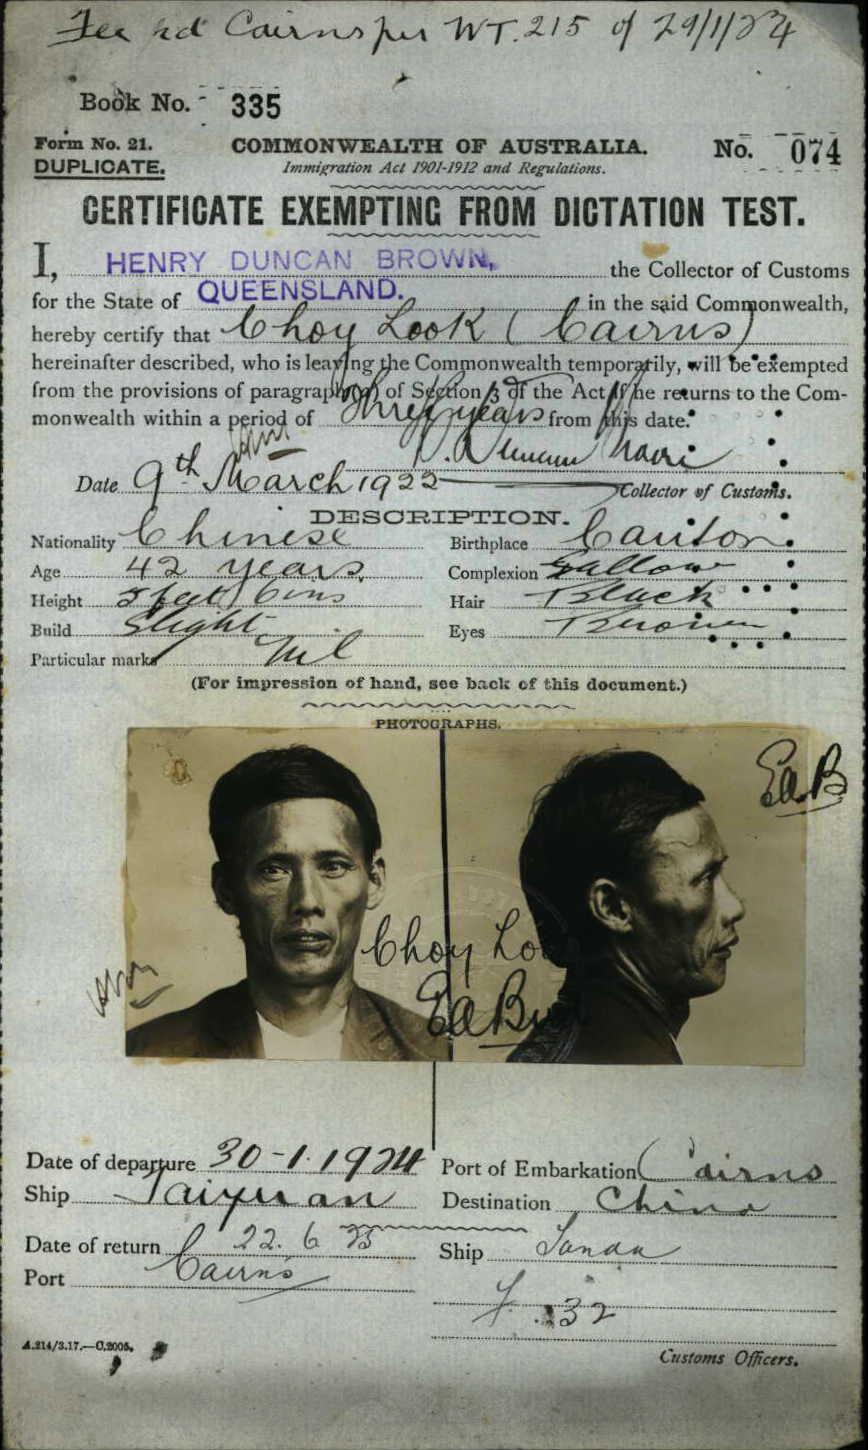 Fee Cairns per WT. 215 of 29/1/24
Book No. 335
Form No. 21.
COMMONWEALTH OF AUSTRALIA.
No. 074
DUPLICATE.
Immigration Act 1901-1912 and Regulations.
CERTIFICATE EXEMPTING FROM DICTATION TEST.
I, HENRY DUNCAN BROWN, the Collector of Customs
for the State of QUEENSLAND. in the said Commonwealth,
hereby certify that Choy Look (Cairns)
hereinafter described, who is leaving the Commonwealth temporarily, will be exempted
from the provisions of paragraph (a) of Section 3 of the Act if he returns to the Com-
monwealth within a period of Three years from this date.
Date 9th March 1922
Collector of Customs.
DESCRIPTION.
Nationality Chinese
Birthplace Canton
Age 42 years
Complexion Sallow
Height 5 feet 6 ins
Hair Black
Build Slight
Eyes Brown
Particular marks Nil
(For impression of hand, see back of this document.)
PHOTOGRAPHS.
Choy Look
Date of departure 30-1-1924
Port of Embarkation Cairns
Ship Taiyuan
Destination China
Date of return 22. 6 25
Ship Tanda
Port Cairns
32
A.214/3.17.—C.2005.
Customs Officers.